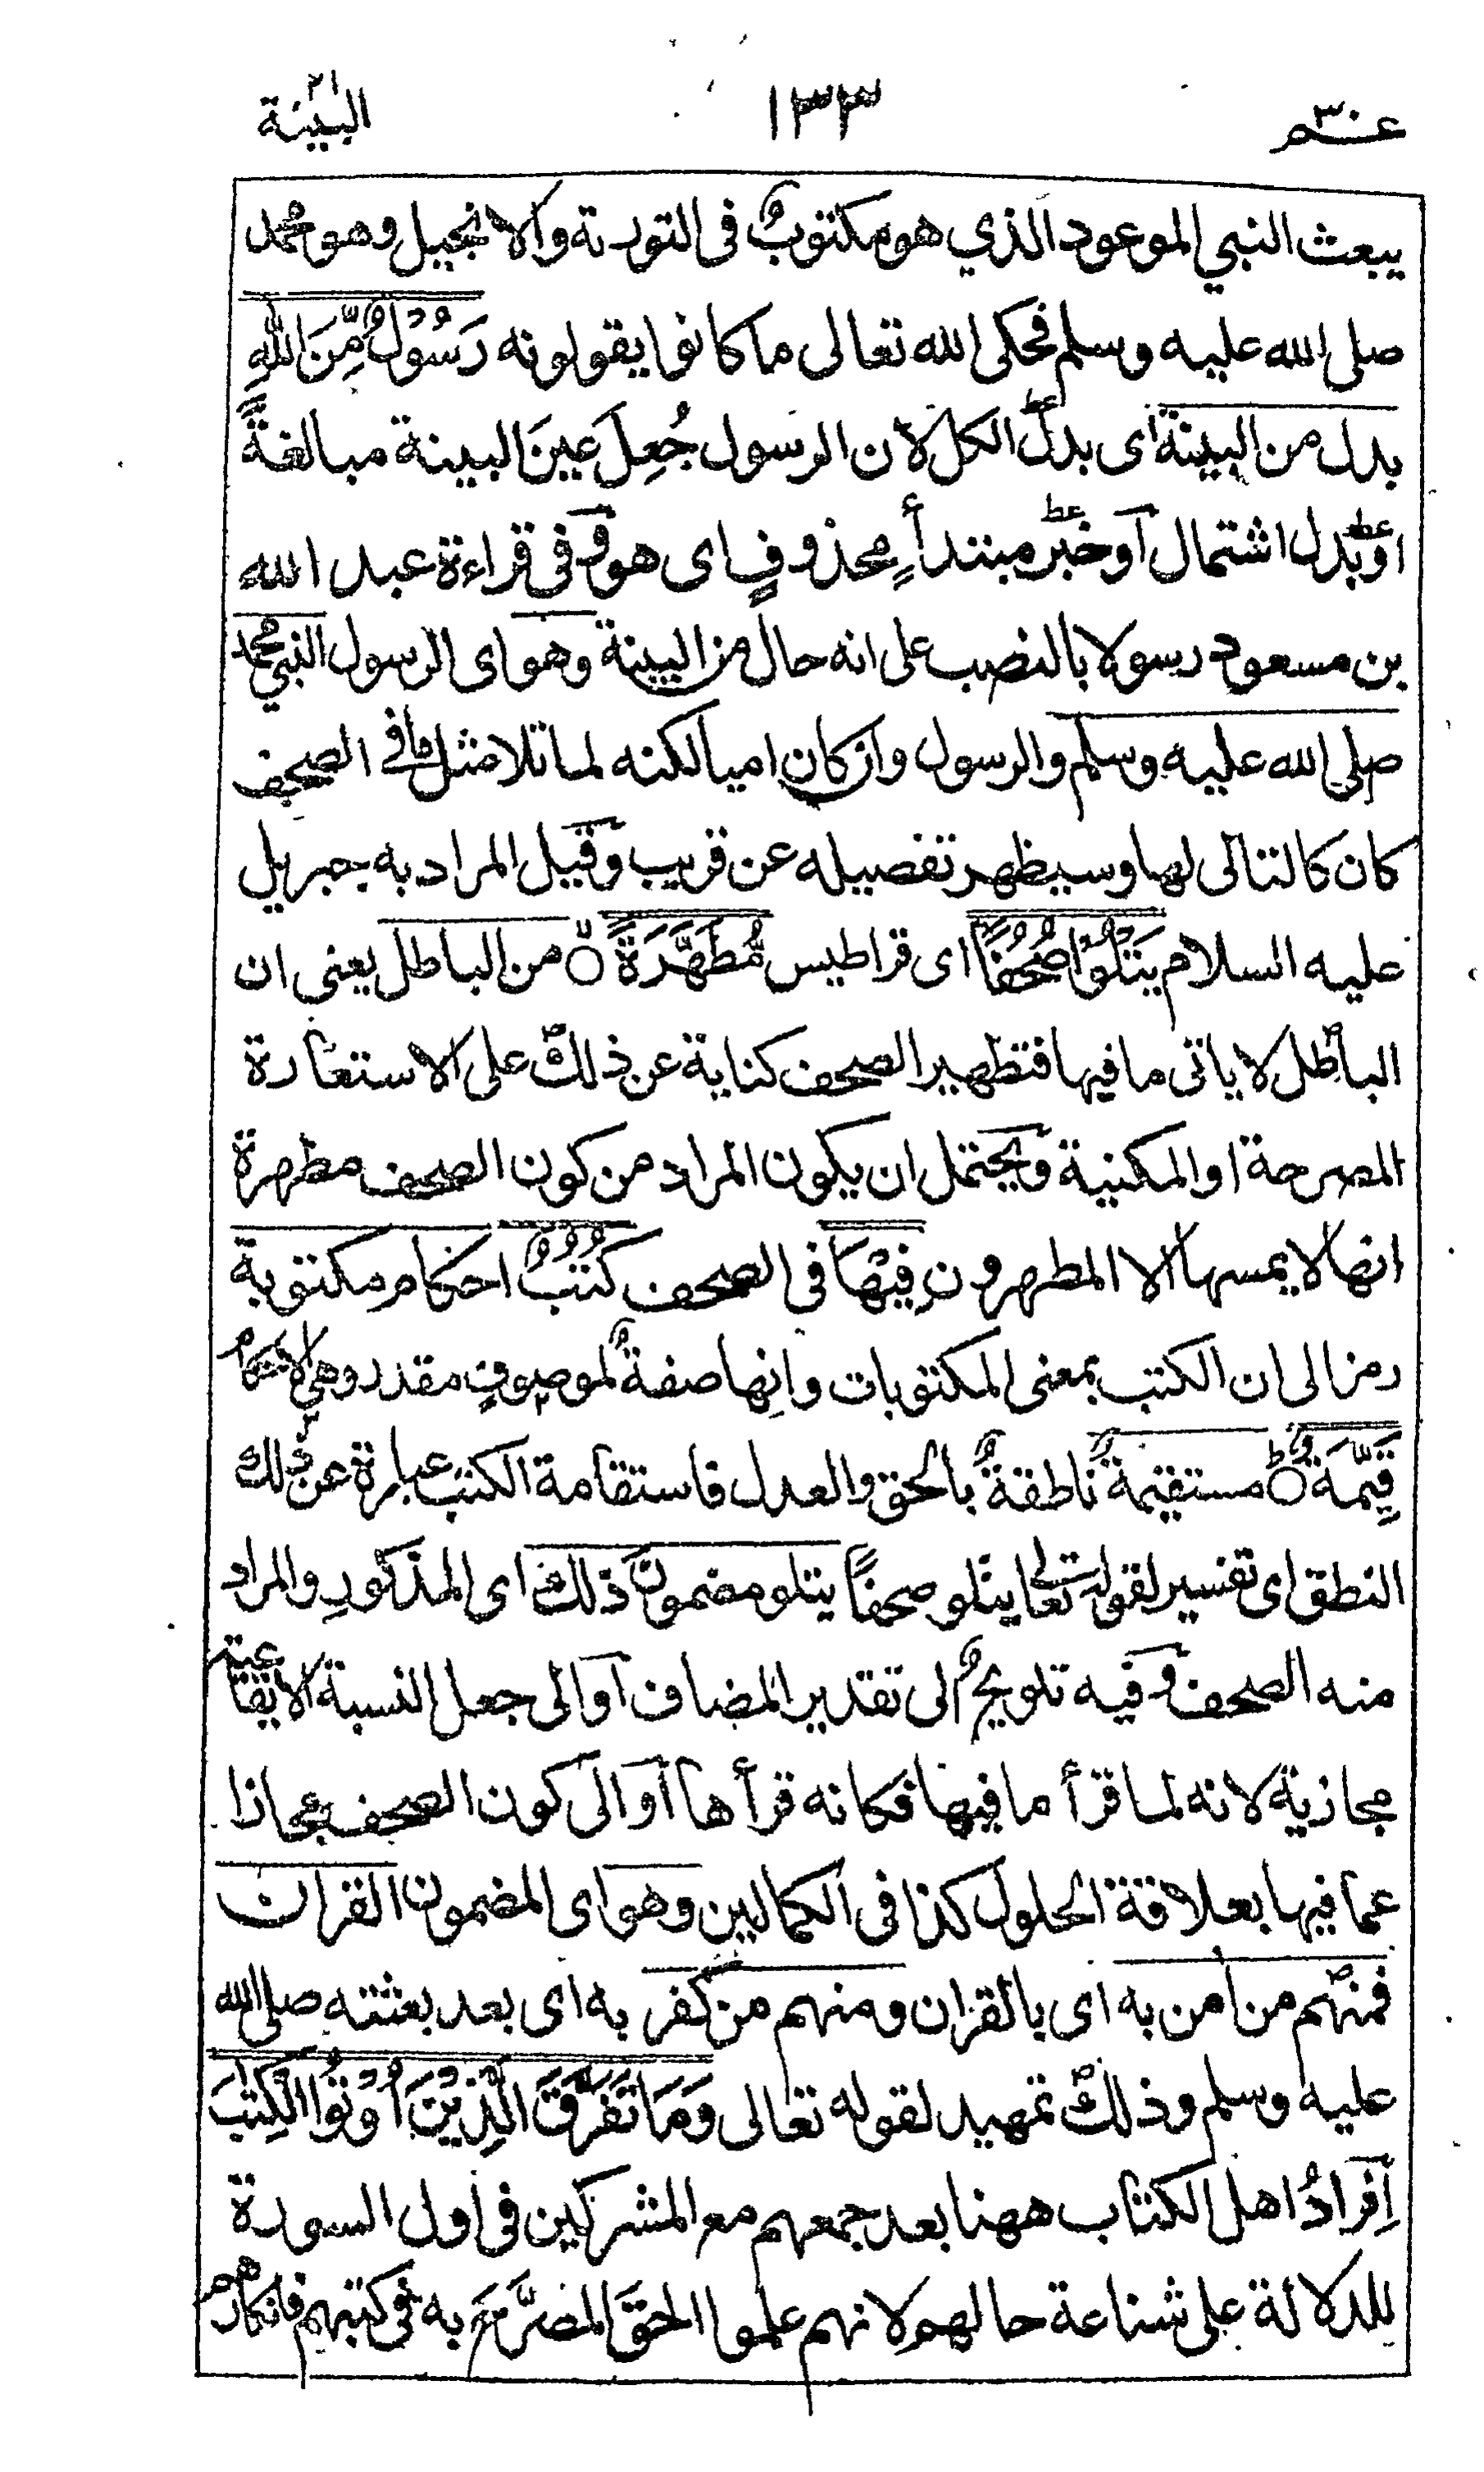 عـــم ٣٠ ١٣٣ البينة
يبعث النبي الموعود الذي هو مكتوبٌ فى التورىة والانجيل وهو محمد
صلى الله عليه وسلم فحكى الله تعالى ما كانوا يقولونه رَسُوْلٌ مِّنَ اللّٰهِ
بدل من البينة اى بدل الكل لان الرسول جُعِلَ عينَ البينة مبالغةً
او بدل اشتمال او خبر مبتدأٍ محذوفٍ اى هو و فى قراءة عبد الله
بن مسعود رسولا بالنصب على انه حال من البينة وهو اى الرسول النبي محمد
صلى الله عليه وسلم والرسول وان كان اميا لكنه لما تلا مثل ما فى الصحف
كان كالتالى لها وسيظهر تفصيله عن قريب وقيل المراد به جبريل
عليه السلام يَتْلُوْا صُحُفًا اى قراطيس مُّطَهَّرَةً ۙ من الباطل يعنى ان
الباطل لا ياتى ما فيها فتطهير الصحف كناية عن ذلك على الاستعارة
المصرحة او المكنية ويحتمل ان يكون المراد من كون الصحف مطهرة
انها لا يمسها الا المطهرون فِيْهَا فى الصحف كُتُبٌ احكام مكتوبة
رمز الى ان الكتب بمعنى المكتوبات وانها صفةٌ لموصوفٍ مقدر وهى الاحكام
قَيِّمَةٌ ؕ مستقيمةٌ ناطقةٌ بالحق والعدل فاستقامة الكتب عبارة عن ذلك
النطق اى تفسير لقوله تعالى يتلو صحفًا يتلو مضمون ذلك اى المذكورِ والمراد
منه الصحف وفيه تلويحٌ الى تقدير المضاف او الى جعل النسبة الايقاعية
مجازية لانه لما قرأ ما فيها فكانه قرأها او الى كون الصحف مجازا
عما فيها بعلاقة الحلول كذا فى الكمالين وهو اى المضمون القران
فمنهم من امن به اى بالقران ومنهم من كفر به اى بعد بعثته صلى الله
عليه وسلم وذلك تمهيد لقوله تعالى وَمَا تَفَرَّقَ الَّذِيْنَ اُوْتُوا الْكِتٰبَ
اِفرادُ اهل الكتاب ههنا بعد جمعهم مع المشركين فى اول السورة
للدلالة على شناعة حالهم لانهم علموا الحقَ المصرَّح به فى كتبهم فانكارهم